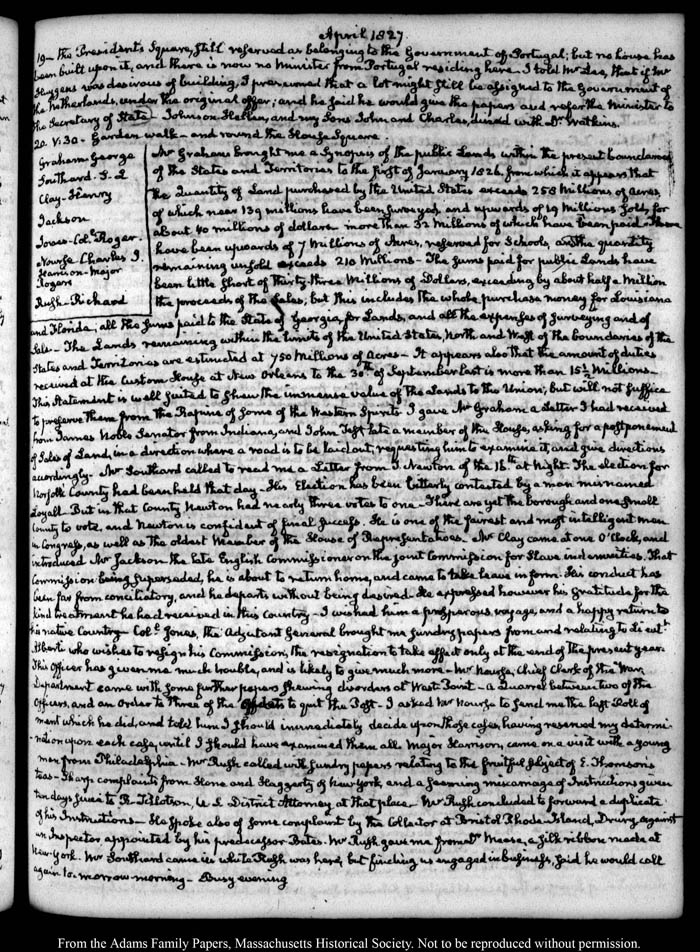 April 1827
19— the President's Square, still reserved as belonging to the Government of Portugal; but no house has
been built upon it, and there is now no Minister from Portugal residing here. I told Mr Lee, that if Mr
Huygens was desirous of building, I presumed that a lot might still be assigned to the Government of
the Netherlands, under the original offer; and he said he would give the papers and refer the Minister to
the Secretary of State. Johnson Hellen, and my Sons John and Charles, dined with Dr Watkins.
20. V:30— Garden walk— and round the House Square.
Graham. George
Southard. S. L
Clay. Henry
Jackson
Jones. Colo. Roger.
Nourse. Charles J.
Harrison. Major
Rogers
Rush. Richard
Mr Graham brought me a Synopsis of the public Lands within the present boundaries
of the States and Territories to the first of January 1826. from which it appears that
the Quantity of Land purchased by the United States exceeds 258 Millions of Acres
of which near 139 millions have been surveyed, and upwards of 19 Millions sold, for
about 40 millions of dollars more than 32 Millions of which have been paid. There
have been upwards of 7 Millions of Acres, reserved for Schools, and the quantity
remaining unsold exceeds 210 Millions— The sums paid for public Lands have
been little short of thirty-three Millions of Dollars, exceeding by about half a Million
the proceeds of the sales; but this includes the whole purchase money for Louisiana
and Florida; all the sums paid to the State of Georgia, for Lands, and all the expenses of surveying and of
Sale— The Lands remaining within the limits of the United States, North and West of the boundaries of the
States and Territories are estimated at 750 Millions of Acres— It appears also that the amount of duties
received at the Custom House at New Orleans to the 30th of September last is more than 15½ Millions—
This Statement is well suited to shew the immense value of the Lands to the Union; but will not suffice
to preserve them from the Rapine of some of the Western Spirits. I gave Mr Graham a Letter I had received
from James Noble Senator from Indiana, and John Test late a member of the House, asking for a postponement
of Sales of Land, in a direction where a road is to be laid out, requesting him to examine it, and give directions
accordingly. Mr Southard called to read me a Letter from T. Newton of the 16th at Night. The election for
Norfolk County had been held that day— His Election has been bitterly contested by a man misnamed
Loyall. But in that County Newton had nearly three votes to one— There are yet the borough and one small
County to vote, and Newton is confident of final success. He is one of the fairest and most intelligent men
in Congress, as well as the oldest Member of the House of Representatives. Mr Clay came at one O'Clock, and
introduced Mr Jackson the late English Commissioner on the joint Commission for Slave indemnities. That
Commission being superseded, he is about to return home, and came to take leave in form. His conduct has
been far from conciliatory, and he departs without being desired. He expressed however his gratitude for the
kind treatment he had received in this Country— I wished him a prosperous voyage, and a happy return to
his native Country— Colo. Jones, the Adjutant General brought me sundry papers from and relating to Lieutt
Alberti who wishes to resign his Commission, the resignation to take effect only at the end of the present year.
This Officer has given me much trouble, and is likely to give much more— Mr Nourse, Chief Clerk of the War
Department came with some further papers shewing disorders at West-Point— a Quarrel between two of the
Officers, and an Order to three of the Cadets to quit the Post— I asked Mr Nourse to send me the last Roll of
merit which he did, and told him I should immediately decide upon those cases, having reserved my determi-
nation upon each case, until I should have examined them all. Major Harrison, came on a visit with a young
man from Philadelphia— Mr Rush called with sundry papers relating to the fruitful subject of E. Thomson's
teas— Sharp complaints from Hone and Haggerty of New York, and a seeming miscarriage of Instructions given
ten days since to R. Tillotson, U.S. District Attorney at that place— Mr Rush concluded to forward a duplicate
of his Instructions— He spoke also of some complaint by the Collector at Bristol Rhode-Island, Drury, against
an Inspector appointed by his predecessor Bates. Mr Rush gave me from Dr Mease, a silk ribbon made at
New-York. Mr Southard came in while Rush was here, but finding us engaged in business, said he would call
again to-morrow morning— Busy evening
From the Adams Family Papers, Massachusetts Historical Society. Not to be reproduced without permission.